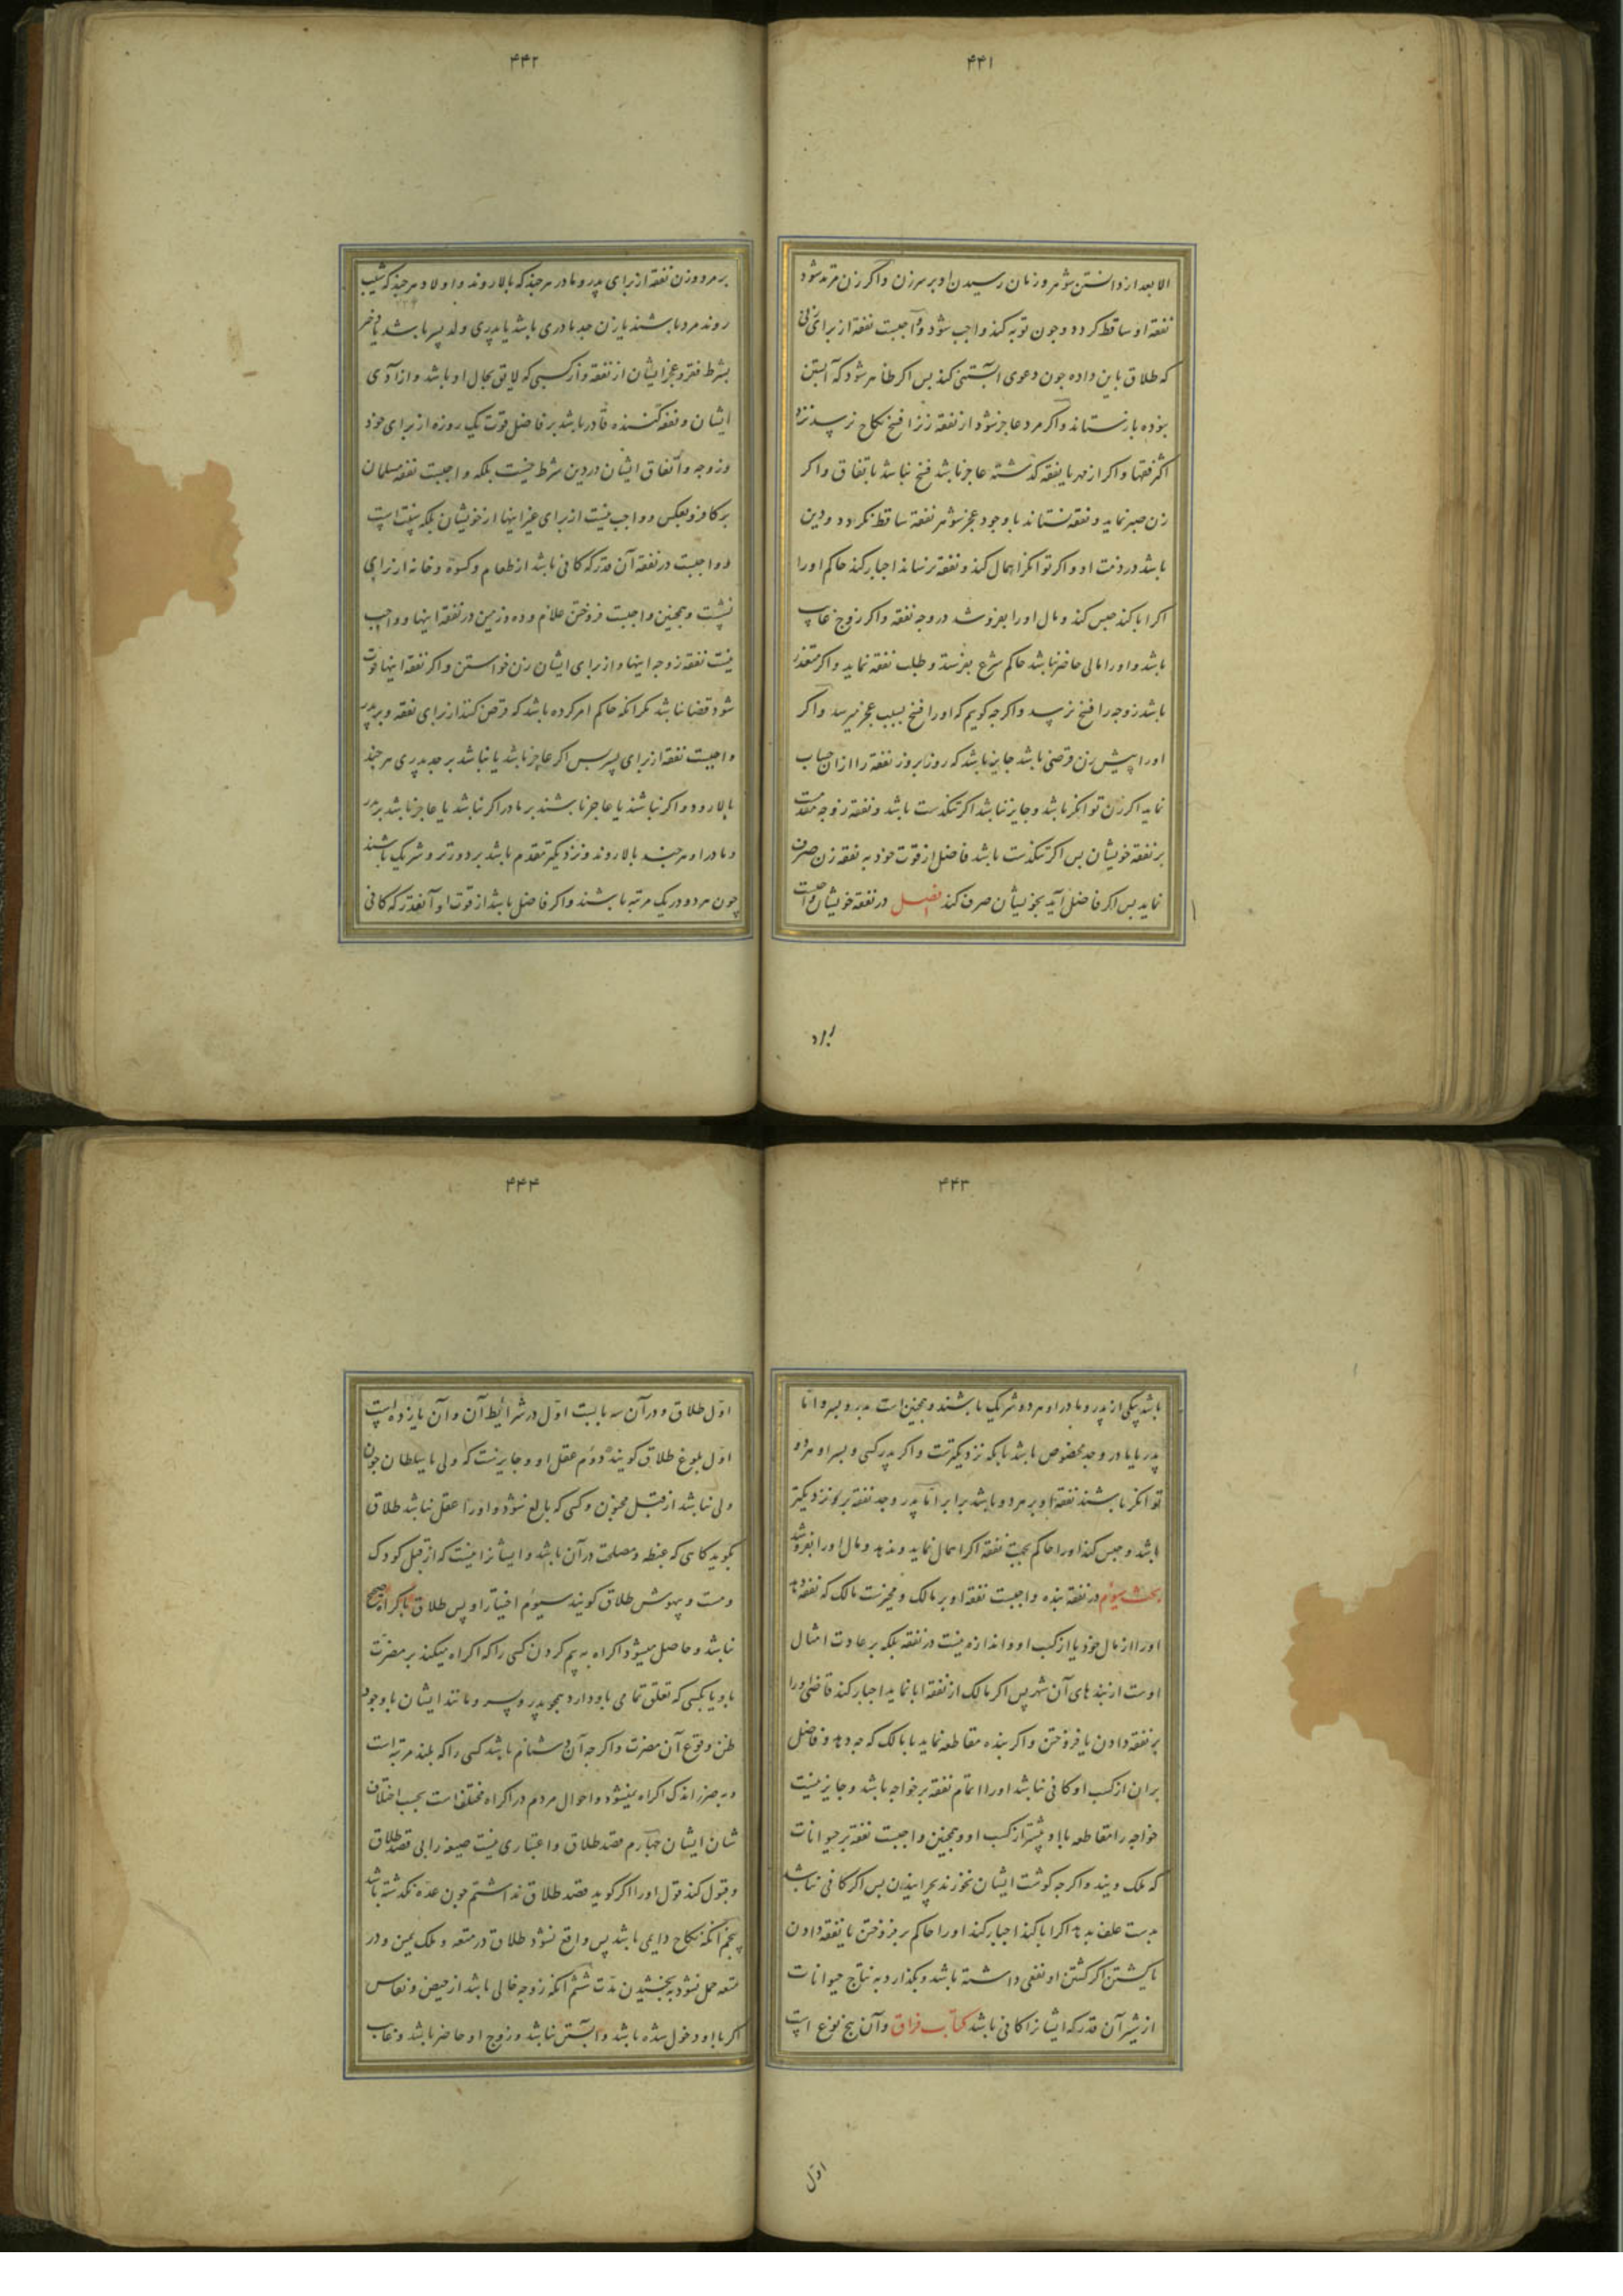 ۴۴۱
الا بعد از دانستن شوهر و زمان رسیدن او بر سر زن و اگر زن مرتد شود
نفقه او ساقط کردد و چون توبه کند واجب شود و واجبست نفقه از برای زنی
که طلاق باین داده چون دعوی آبستنی کند پس اگر ظاهر شود که آبستن
نبوده باز ستاند و اگر مرد عاجز شود از نفقه زنرا فسخ نکاح نرسد نزد
اکثر فقها و اگر از مهر یا نفقه گذشته عاجز باشد فسخ نباشد باتفاق و اگر
زن صبر نماید و نفقه نستاند با وجود عجز شوهر نفقه ساقط نکردد و دین
باشد در ذمت او و اگر توانگر اهمال کند و نفقه نرساند اجبار کند حاکم او را
اگر ابا کند حبس کند و مال او را بفروشد در وجه نفقه و اگر زوج غایب
باشد و او را مالی حاضر نباشد حاکم شرع بفرستد و طلب نفقه نماید و اگر متعذر
باشد زوجه را فسخ نرسد و اگر چه گویم که او را فسخ بسبب عجز میرسد و اگر
او را پیش زن قرضی باشد جایز باشد که روز بروز نفقه را از ان حساب
نماید اگر زن توانگر باشد و جایز نباشد اگر تنگدست باشد و نفقه زوجه مقدمست
بر نفقه خویشان پس اگر تنگدست باشد فاضل از قوت خود به نفقه زن صرف
نماید پس اگر فاضل آید بخویشان صرف کند فصل در نفقه خویشان واجبست
۴۴۲
بر مرد و زن نفقه از برای پدر و مادر هرچند که بالا روند و اولاد هرچند که بشیب
روند مرد باشند یا زن جد مادری باشد یا پدری ولد پسر باشد یا دختر
بشرط فقر و عجز ایشان از نفقه و از کسبی که لایق بحال او باشد و از آدی
ایشان و نفقه کننده قادر باشد بر فاضل قوت یک روزه از برای خود
و زوجه و اتفاق ایشان در دین شرط نیست بلکه واجبست نفقه مسلمان
بر کافر و بعکس و واجب نیست از برای غیر اینها از خویشان بلکه سنت است
و واجبست در نفقه آن قدر که کافی باشد از طعام و کسوه و خانه از برای
نشست و همچنین واجبست فروختن غلام و ده و زمین در نفقه اینها و واجب
نیست نفقه زوجه اینها و از برای ایشان زن خواستن و اگر نفقه اینها فوت
شود قضا نباشد مگر آنکه حاکم امر کرده باشد که قرض کنند از برای نفقه و بر پدر
واجبست نفقه از برای پسر پس اگر عاجز باشد یا نباشد بر جد پدری هرچند
بالا رود و اگر نباشند یا عاجز باشند بر مادر اگر نباشد یا عاجز باشد بر پدر
و مادر او هرچند بالا روند و نزدیکتر مقدم باشد بر دورتر و شریک باشند
چون هر دو در یک مرتبه باشند و اگر فاضل باشد از قوت او آنقدر که کافی
۴۴۳
باشد یکی از پدر و مادر او هر دو شریک باشند و همچنین است پدر و پسر و اما
پدر یا مادر و جد مخصوص باشد بآنکه نزدیکترست و اگر پدر کسی و پسر او هر دو
توانگر باشند نفقه او بر هر دو باشد برابر اما پدر و جد نفقه بر او نزدیکتر
باشد و حبس کند او را حاکم بجهت نفقه اگر اهمال نماید و ندهد و مال او را بفروشد
بحث سیوم در نفقه بنده واجبست نفقه او بر مالک و مخیرست مالک که نفقه دهد
او را از مال خود یا از کسب او و اندازه نیست در نفقه بلکه بر عادت امثال
اوست از بندهای آن شهر پس اگر مالک از نفقه ابا نماید اجبار کند قاضی او را
بر نفقه دادن یا فروختن و اگر بنده مقاطعه نماید با مالک که چه دهد و فاضل
بر ان از کسب او کافی نباشد او را اتمام نفقه بر خواجه باشد و جایز نیست
خواجه را مقاطعه با او بیشتر از کسب او و همچنین واجبست نفقه بر حیوانات
که ملک ویند و اگر چه گوشت ایشان نخورند بچرانیدن پس اگر کافی نباشد
بدست علف بدهد اگر ابا کند اجبار کند او را حاکم بر فروختن یا نفقه دادن
یا کشتن اگر کشتن او نفعی داشته باشد و بگذارد به نتاج حیوانات
از شیر آن قدر که ایشانرا کافی باشد کتاب فراق و آن پنج نوع است
اول
۴۴۴
اول طلاق و در آن سه بابست اول در شرائط آن و آن یازده است
اول بلوغ طلاق گوینده دوم عقل او و جایز نیست که ولی یا سلطان چون
ولی نباشد از قبل مجنون و کسی که بالغ شود و او را عقل نباشد طلاق
گوید گاهی که غبطه و مصلحت در آن باشد و ایشانرا نیست که از قبل کودک
و مست و بیهوش طلاق گویند سیوم اختیار او پس طلاق باکراه صحیح
نباشد و حاصل میشود اکراه به بیم کردن کسی را که اکراه میکند بر مضرت
باو یا بکسی که تعلق تمامی باو دارد همچو پدر و پسر و مانند ایشان با وجود
ظن وقوع آن مضرت و اگر چه آن دشنام باشد کسی را که بلند مرتبه است
و به ضرر اندک اکراه نمیشود و احوال مردم در اکراه مختلف است بحسب اختلاف
شان ایشان چهارم قصد طلاق و اعتباری نیست صیغه را بی قصد طلاق
و قبول کند قول او را اگر گوید قصد طلاق نداشتم چون عده نگذشته باشد
پنجم آنکه نکاح دایمی باشد پس واقع نشود طلاق در متعه و ملک یمین و در
متعه حل نشود به بخشیدن مدت ششم آنکه زوجه خالی باشد از حیض و نفاس
اگر با او دخول شده باشد و آبستن نباشد و زوج او حاضر باشد و غایب